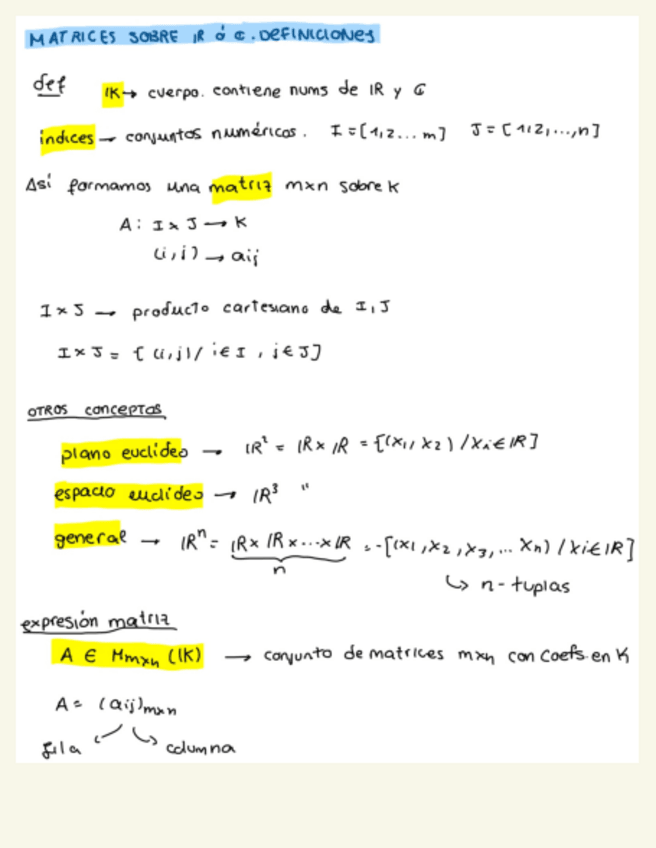 MATRICES SOBRE IR ó ₵. DEFINICIONES
def IK → cuerpo. contiene nums de IR y ₵
indices → conjuntos numéricos. I = [1,2...m] J = [1,2,...,n]
Así formamos una matriz mxn sobre K
A: I x J → K
(i,j) → aij
I x J → producto cartesiano de I,J
I x J = { (i,j) / i ∈ I , j ∈ J }
OTROS CONCEPTOS
plano euclídeo → IR² = IR x IR = {(x1, x2) / xi ∈ IR}
espacio euclídeo → IR³ "
general → IRⁿ = IR x IR x ... x IR = {(x1, x2, x3, ... xn) / xi ∈ IR}
n
↳ n-tuplas
expresión matriz
A ∈ Mmxn (IK) → conjunto de matrices mxn con coefs en K
A = (aij)mxn
fila columna